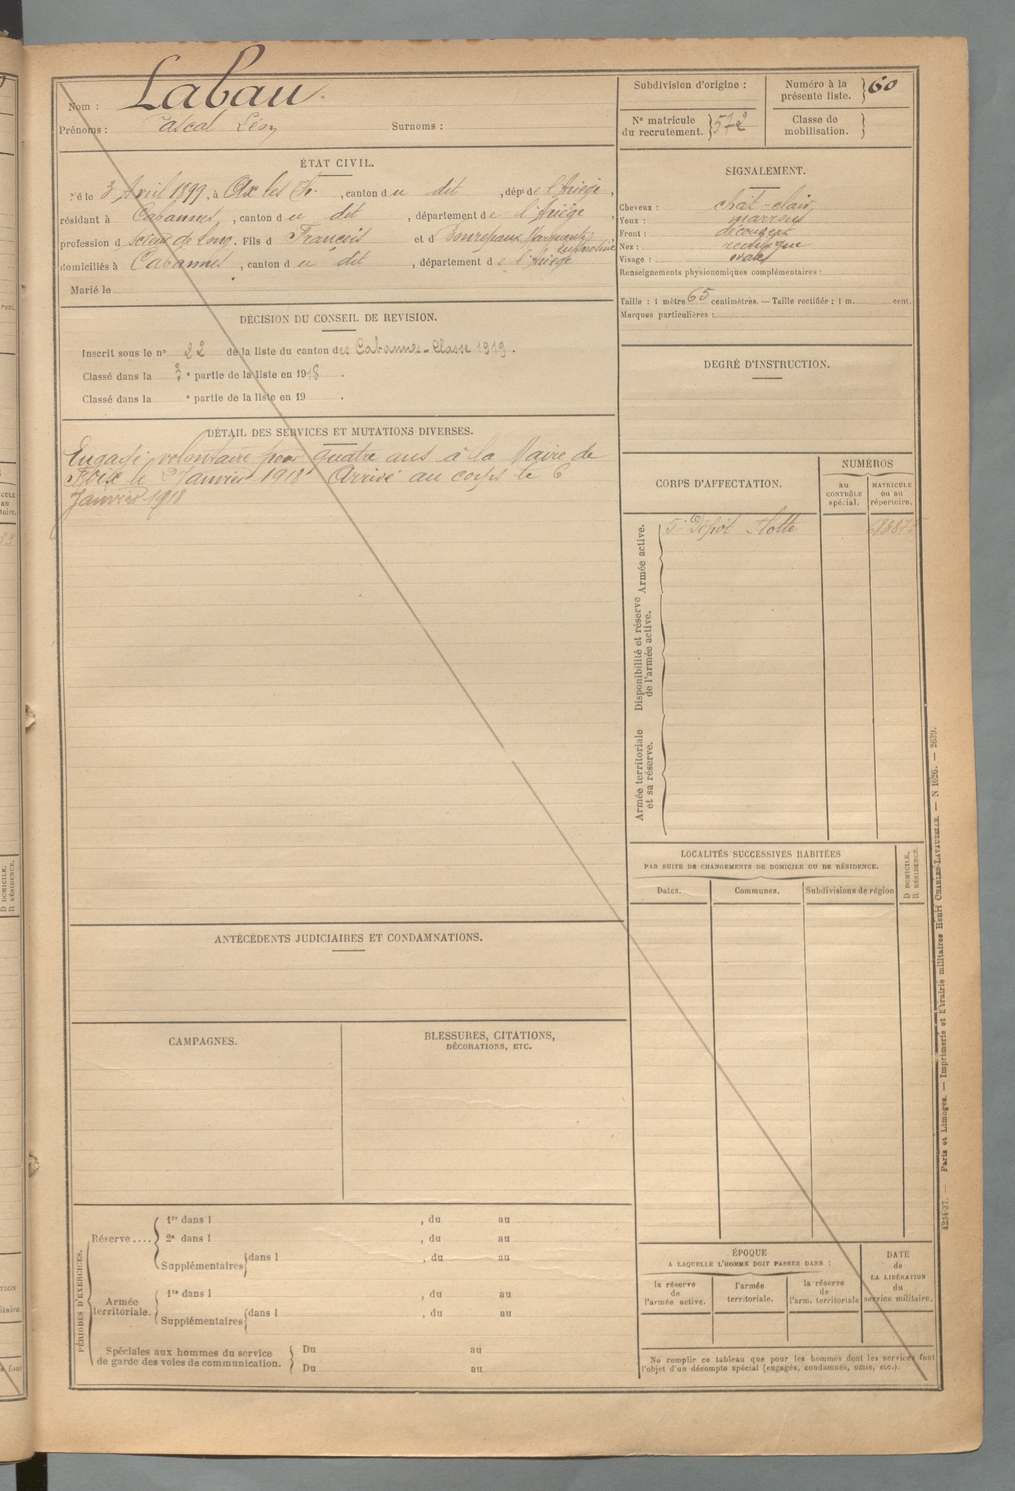 Nom : Labau
Prénoms : Pascal Léon Surnoms :
Subdivision d'origine :
Numéro à la présente liste. } 60
N° matricule du recrutement. } 572
Classe de mobilisation. }
ÉTAT CIVIL.
Né le 3 Avril 1899, à Ax les Th., canton du dit, dépt de l'Ariège,
résidant à Cabannes, canton du dit, département de l'Ariège,
profession d scieur de long. Fils d François et d
domiciliés à Cabannes, canton du dit, département de l'Ariège
Marié le
SIGNALEMENT.
Cheveux : chât-clair
Yeux : marrens
Front : découvert
Nez : rectiligne
Visage : ovale
Renseignements physionomiques complémentaires :
Taille : 1 mètre 65 centimètres. — Taille rectifiée : 1 m. cent.
Marques particulières :
DÉCISION DU CONSEIL DE REVISION.
Inscrit sous le n° 22 de la liste du canton des Cabannes - Classe 1919.
Classé dans la e partie de la liste en 1918.
Classé dans la e partie de la liste en 19 .
DEGRÉ D'INSTRUCTION.
DÉTAIL DES SERVICES ET MUTATIONS DIVERSES.
Engagé volontaire pour quatre ans à la Mairie de
Foix le Janvier 1918 Arrivé au corps le 6
Janvier 1918
CORPS D'AFFECTATION.
NUMÉROS
AU CONTRÔLE spécial.
MATRICULE ou au répertoire.
Armée active.
5e Dépôt Flotte
Disponibilité et réserve de l'armée active.
Armée territoriale et sa réserve.
LOCALITÉS SUCCESSIVES HABITÉES
PAR SUITE DE CHANGEMENTS DE DOMICILE OU DE RÉSIDENCE.
Dates. Communes. Subdivisions de région
D DOMICILE. R RÉSIDENCE.
ANTÉCÉDENTS JUDICIAIRES ET CONDAMNATIONS.
CAMPAGNES.
BLESSURES, CITATIONS,
DÉCORATIONS, ETC.
PÉRIODES D'EXERCICES.
Réserve .... { 1re dans l , du au
2e dans l , du au
Supplémentaires { dans l , du au
Armée territoriale. { 1re dans l , du au
Supplémentaires { dans l , du au
Spéciales aux hommes du service de garde des voies de communication. { Du au
Du au
ÉPOQUE
A LAQUELLE L'HOMME DOIT PASSER DANS :
la réserve de l'armée active.
l'armée territoriale.
la réserve de l'arm. territoriale
DATE de LA LIBÉRATION du service militaire.
No remplir ce tableau que pour les hommes dont les services font
l'objet d'un décompte spécial (engagés, condamnés, omis, etc.).
4234-37. — Paris et Limoges. — Imprimerie et librairie militaires Henri CHARLES-LAVAUZELLE. — N 1026. — 2639.